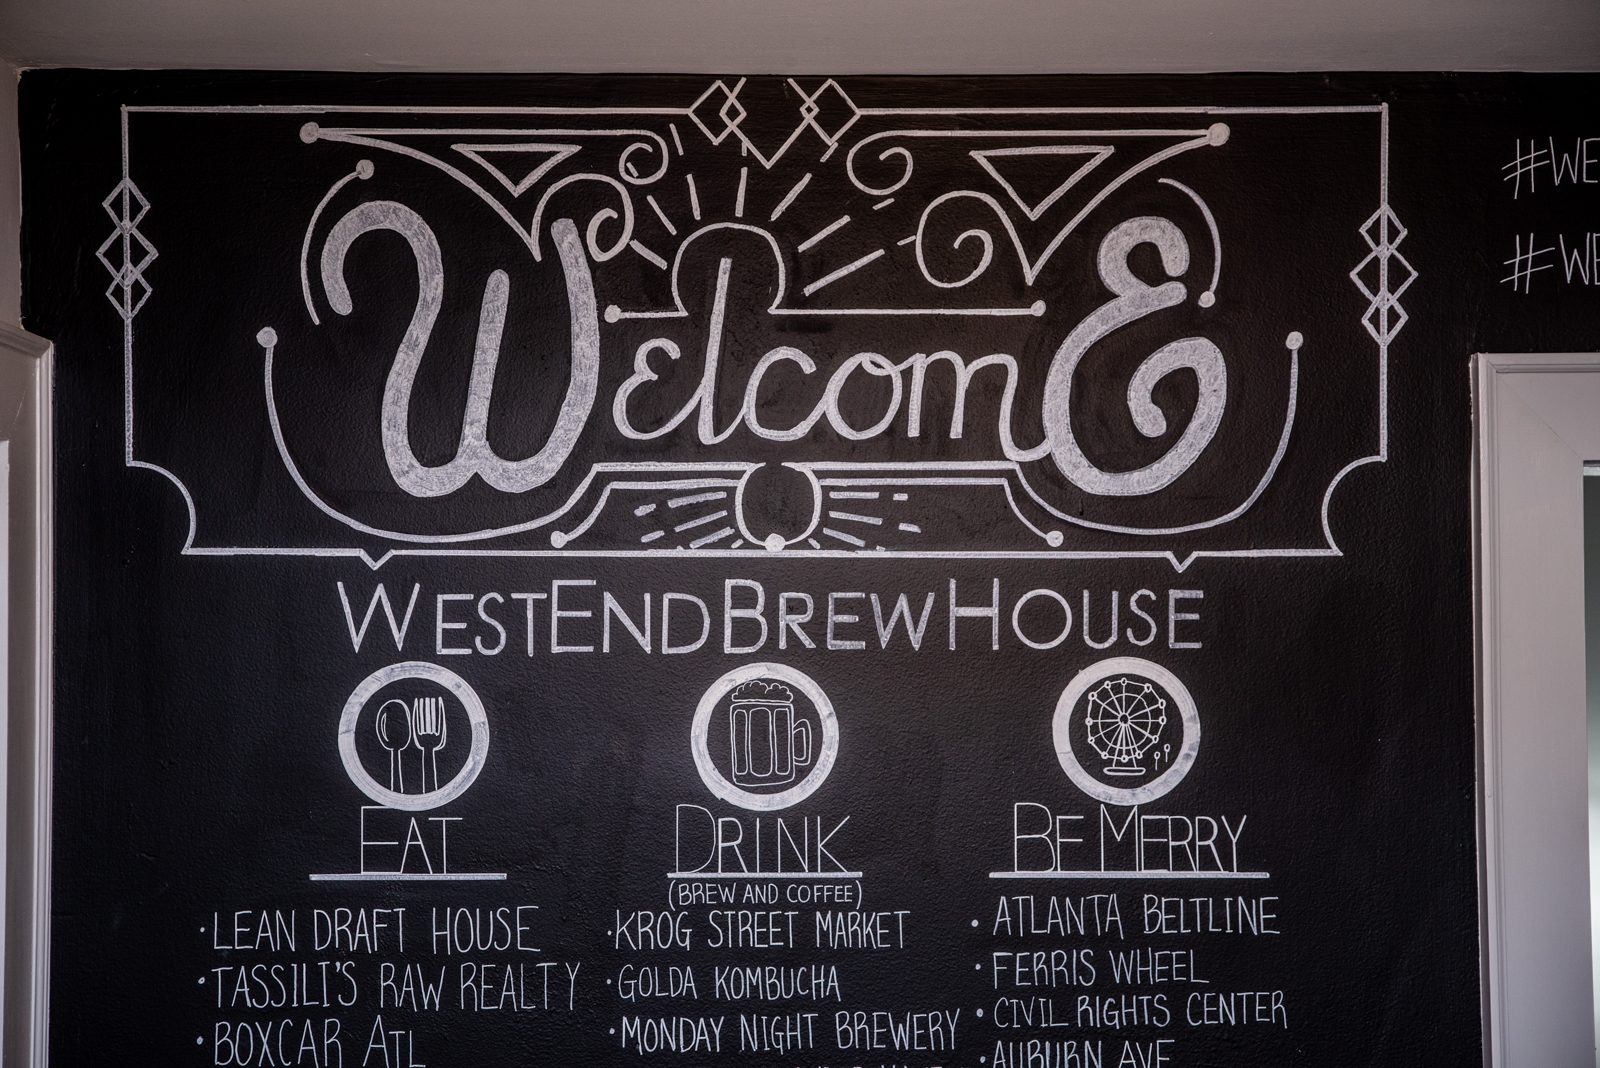 #WE
#WE
WelcomE
WESTENDBREWHOUSE
EAT
LEAN DRAFT HOUSE
TASSILI'S RAW REALTY
BOXCAR ATL
DRINK
(BREW AND COFFEE)
KROG STREET MARKET
GOLDA KOMBUCHA
MONDAY NIGHT BREWERY
BE MERRY
ATLANTA BELTLINE
FERRIS WHEEL
CIVIL RIGHTS CENTER
AUBURN AVE